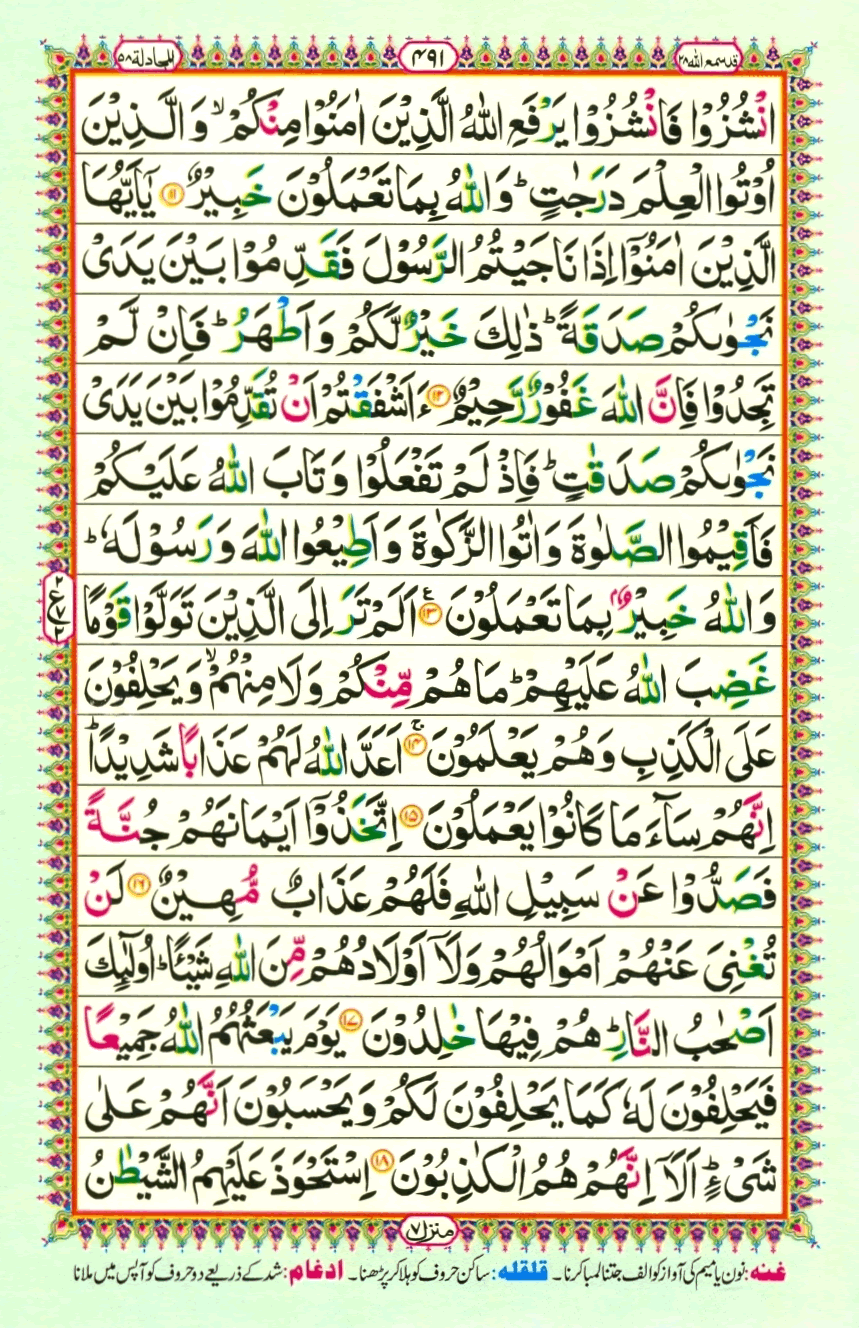 قدسمع الله ٢٨
۴۹۱
المجادلة ۵۸
انْشُزُوْا فَانْشُزُوْا یَرْفَعِ اللّٰهُ الَّذِیْنَ اٰمَنُوْا مِنْكُمْ ۙ وَ الَّذِیْنَ
اُوْتُوا الْعِلْمَ دَرَجٰتٍ ؕ وَ اللّٰهُ بِمَا تَعْمَلُوْنَ خَبِیْرٌ ﴿۱۱﴾ یٰۤاَیُّهَا
الَّذِیْنَ اٰمَنُوْۤا اِذَا نَاجَیْتُمُ الرَّسُوْلَ فَقَدِّمُوْا بَیْنَ یَدَیْ
نَجْوٰىكُمْ صَدَقَةً ؕ ذٰلِكَ خَیْرٌ لَّكُمْ وَ اَطْهَرُ ؕ فَاِنْ لَّمْ
تَجِدُوْا فَاِنَّ اللّٰهَ غَفُوْرٌ رَّحِیْمٌ ﴿۱۲﴾ ءَاَشْفَقْتُمْ اَنْ تُقَدِّمُوْا بَیْنَ یَدَیْ
نَجْوٰىكُمْ صَدَقٰتٍ ؕ فَاِذْ لَمْ تَفْعَلُوْا وَ تَابَ اللّٰهُ عَلَیْكُمْ
فَاَقِیْمُوا الصَّلٰوةَ وَ اٰتُوا الزَّكٰوةَ وَ اَطِیْعُوا اللّٰهَ وَ رَسُوْلَهٗ ؕ
وَ اللّٰهُ خَبِیْرٌۢ بِمَا تَعْمَلُوْنَ ﴿۱۳﴾ اَلَمْ تَرَ اِلَى الَّذِیْنَ تَوَلَّوْا قَوْمًا
غَضِبَ اللّٰهُ عَلَیْهِمْ ؕ مَا هُمْ مِّنْكُمْ وَ لَا مِنْهُمْ ۙ وَ یَحْلِفُوْنَ
عَلَى الْكَذِبِ وَ هُمْ یَعْلَمُوْنَ ﴿۱۴﴾ۚ اَعَدَّ اللّٰهُ لَهُمْ عَذَابًا شَدِیْدًا ؕ
اِنَّهُمْ سَآءَ مَا كَانُوْا یَعْمَلُوْنَ ﴿۱۵﴾ اِتَّخَذُوْۤا اَیْمَانَهُمْ جُنَّةً
فَصَدُّوْا عَنْ سَبِیْلِ اللّٰهِ فَلَهُمْ عَذَابٌ مُّهِیْنٌ ﴿۱۶﴾ لَنْ
تُغْنِیَ عَنْهُمْ اَمْوَالُهُمْ وَ لَاۤ اَوْلَادُهُمْ مِّنَ اللّٰهِ شَیْـًٔا ؕ اُولٰٓىِٕكَ
اَصْحٰبُ النَّارِ ؕ هُمْ فِیْهَا خٰلِدُوْنَ ﴿۱۷﴾ یَوْمَ یَبْعَثُهُمُ اللّٰهُ جَمِیْعًا
فَیَحْلِفُوْنَ لَهٗ كَمَا یَحْلِفُوْنَ لَكُمْ وَ یَحْسَبُوْنَ اَنَّهُمْ عَلٰى
شَیْءٍ ؕ اَلَاۤ اِنَّهُمْ هُمُ الْكٰذِبُوْنَ ﴿۱۸﴾ اِسْتَحْوَذَ عَلَیْهِمُ الشَّیْطٰنُ
٢
ع
٧
٢
منزل ٧
غنه: نون یا میم کی آواز کو الف جتنا لمبا کرنا۔ قلقله: ساکن حروف کو ہلا کر پڑھنا۔ ادغام: شد کے ذریعے دو حروف کو آپس میں ملانا